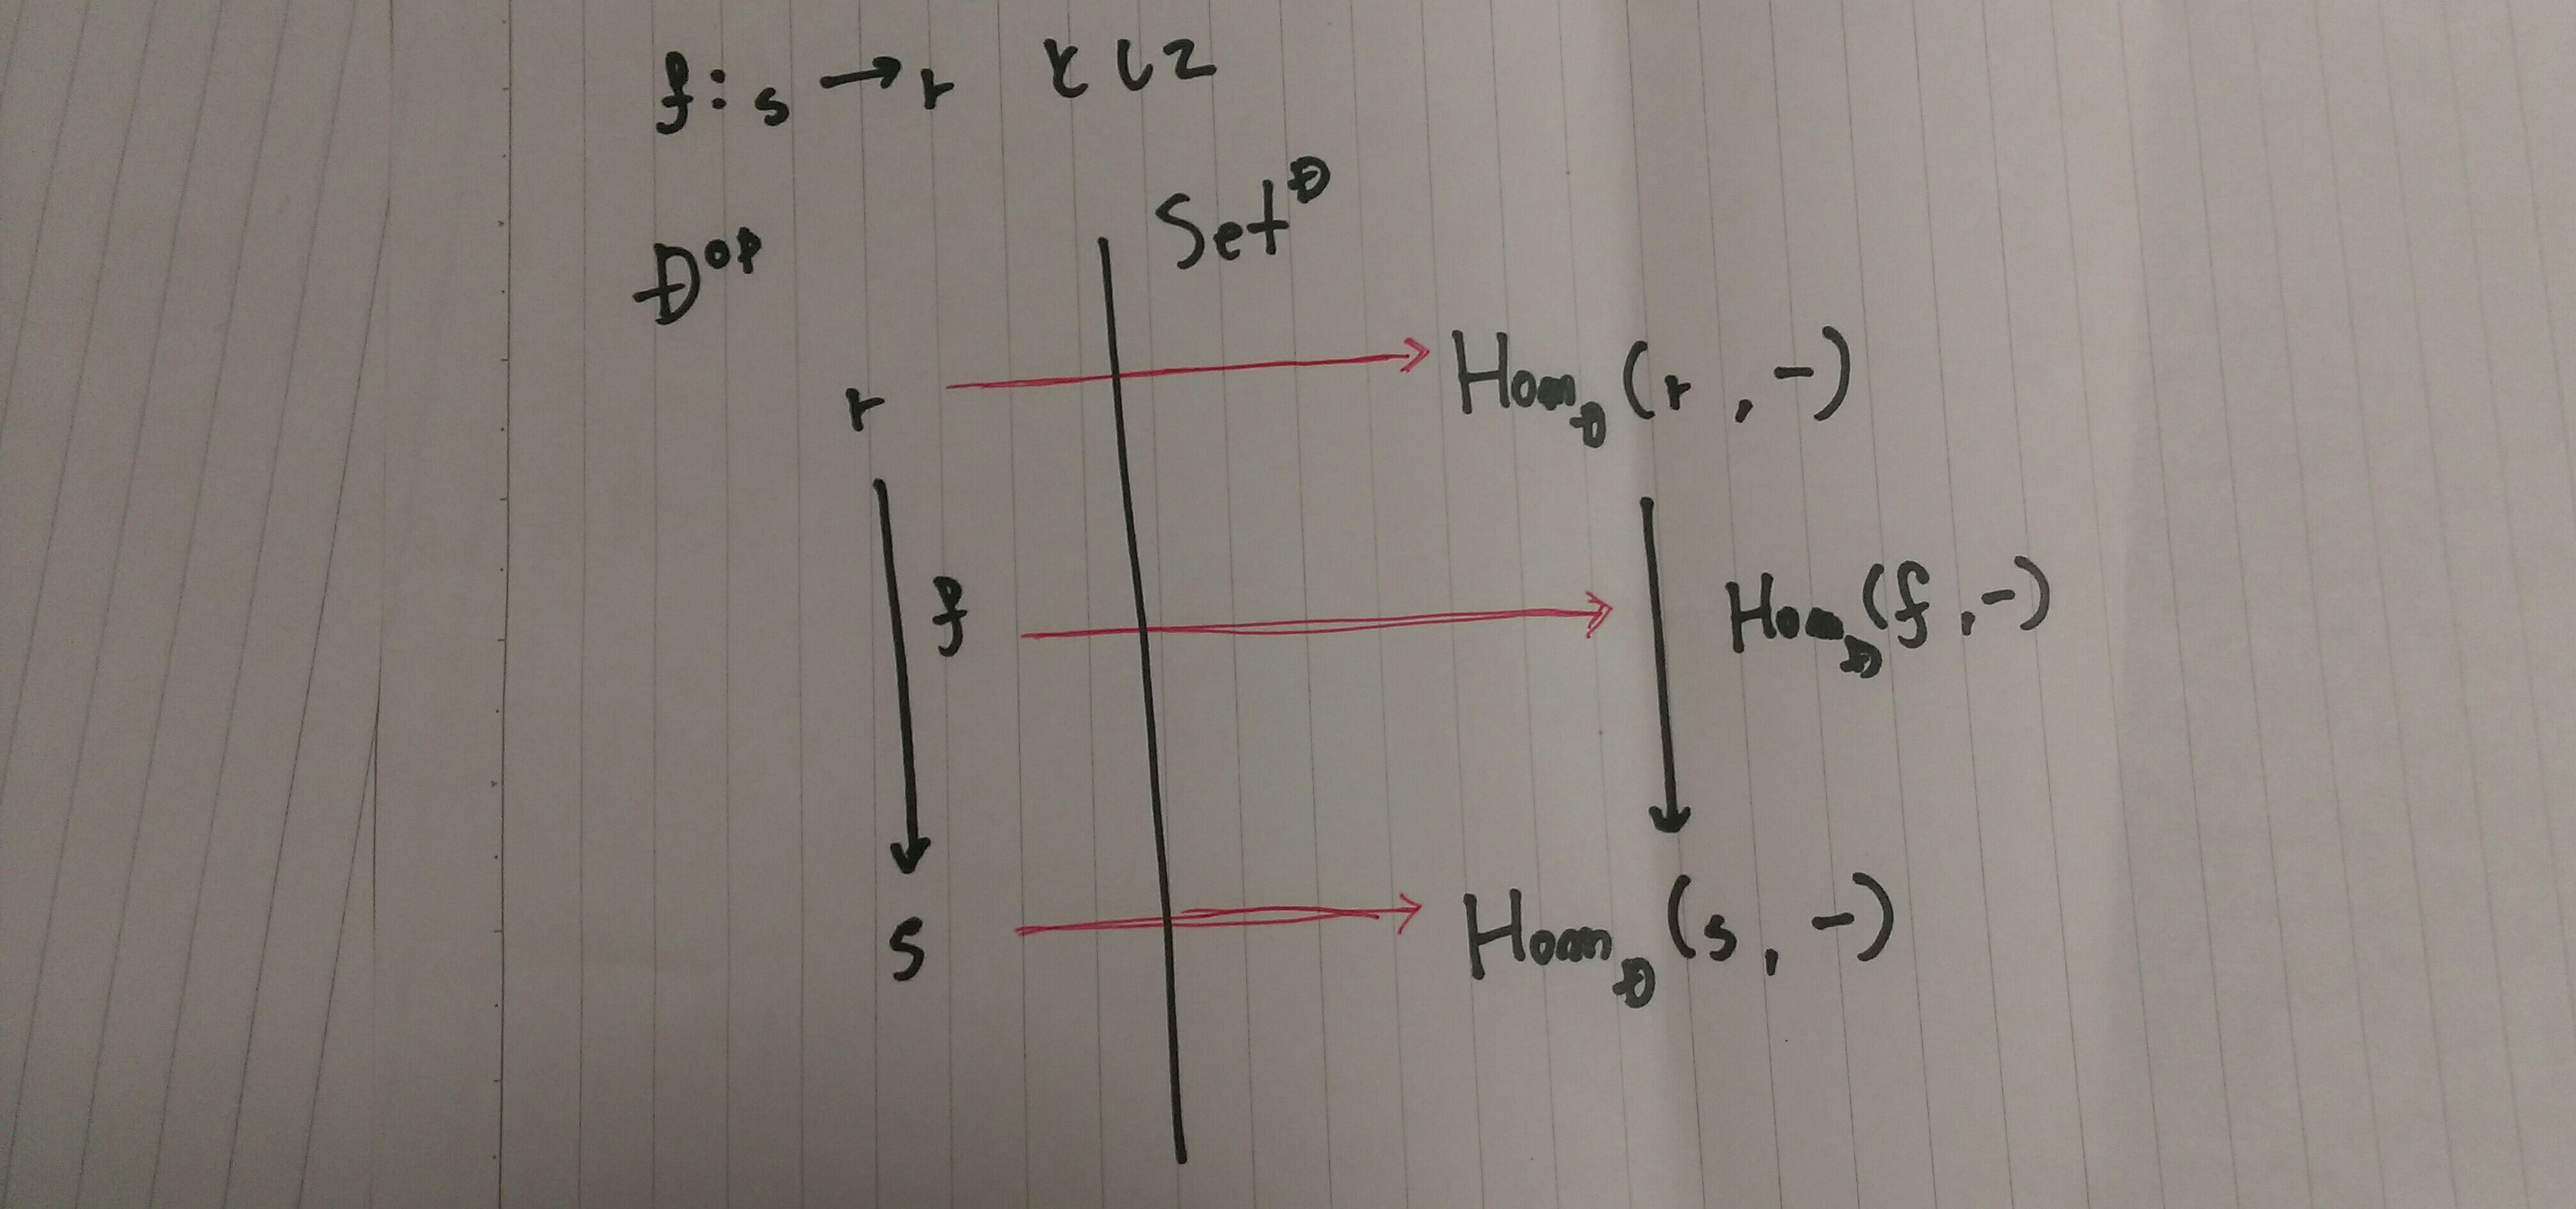 f: s → r として
D^op
Set^D
r → Hom_D (r, -)
f → Hom_D (f, -)
s → Hom_D (s, -)